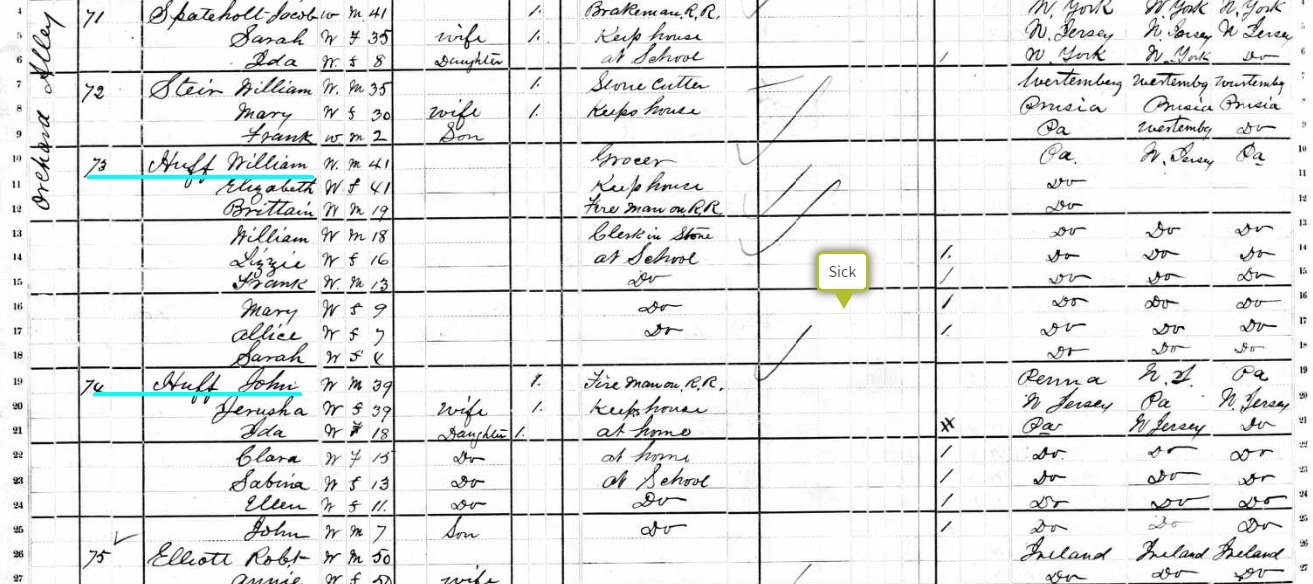 Orchard Alley
4 71 Spateholt Jacob W M 41 1. Brakeman. R.R. N. York N. York N. York 4
5 Sarah W F 35 wife 1. Keep house N. Jersey N. Jersey N Jersey 5
6 Ida W f 8 Daughter at School 1 N York N. York Do 6
7 72 Stein William W. M 35 1. Stone Cutter Wertemberg Wertembg Wurtembg 7
8 Mary W f 30 wife 1. Keeps house Prusia Prusia Prusia 8
9 Frank W m 2 Son Pa Wertembg Do 9
10 73 Huff William W. M 41 Grocer Pa. N. Jersey Pa 10
11 Elizabeth W f 41 Keep house Do 11
12 Brittain W M 19 Fire Man on R.R. Do 12
13 William W M 18 Clerk in Store Do Do Do 13
14 Lizzie W f 16 at School 1. Do Do Do 14
15 Frank W. M 13 Do 1 Do Do Do 15
Sick
16 Mary W f 9 Do 1 Do Do Do 16
17 Allice W f 7 Do 1. Do Do Do 17
18 Sarah W f 4 Do Do Do 18
19 74 Huff John W M 39 1. Fire Man on. R.R. Penna N. J. Pa 19
20 Jerusha W f 39 wife 1. Keeps house N Jersey Pa N. Jersey 20
21 Ida W F 18 Daughter 1. at home Pa N Jersey Do 21
22 Clara W F 15 Do at home 1 Do Do Do 22
23 Sabina W f 13 Do at School 1 Do Do Do 23
24 Ellen W f 11. Do Do 1 Do Do Do 24
25 John W M 7 Son Do 1 Do Do Do 25
26 75 Elliott Robt W M 50 Ireland Ireland Ireland 26
27 Annie W f 50 wife Do Do Do 27